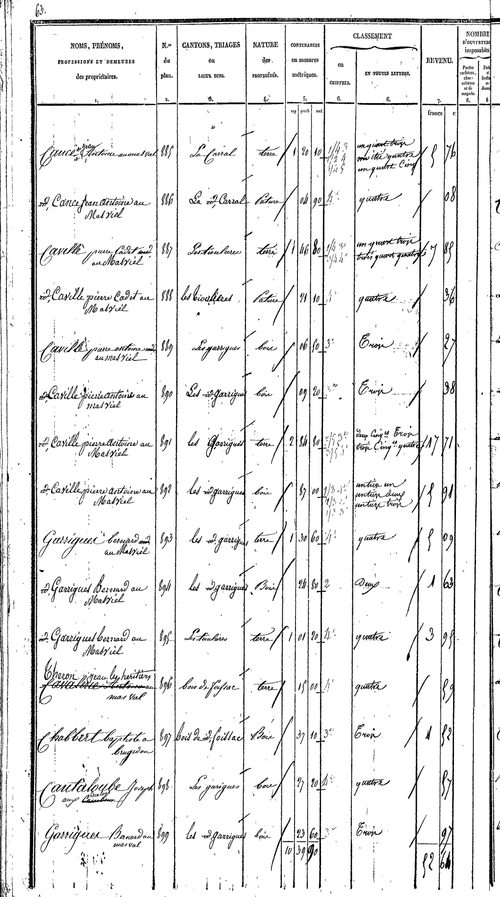 63.
NOMS, PRÉNOMS, PROFESSIONS ET DEMEURES des propriétaires. N.os du plan. CANTONS, TRIAGES ou LIEUX DITS. NATURE des PROPRIÉTÉS. CONTENANCES en mesures métriques. CLASSEMENT en CHIFFRES. EN TOUTES LETTRES. REVENU. NOMBRE D'OUVERTURES imposables
1. 2. 3. 4. 5. 6. 6. 7. 8. 8.
francs c.
Antoine au mas viel 885 La Carral terre 1 20 10 1/4 3 un quart trois 5 76
quatre
un quart Cinq
id. Cance Jean Antoine au Mas Viel 886 La id. Carral Pature 04 90 4e quatre 08
Caville pierre Cadet au Mas Viel 887 terre 1 46 80 un quart trois 7 85
trois quarts quatre
id. Caville pierre Cadet au Mas Viel 888 les Pature 21 10 4e quatre 36
Caville pierre antoine au mas viel 889 Les garrigues bois 06 80 3e Trois 27
id. Caville pierre Antoine au mas viel 890 Les id garrigues bois 09 20 Trois 38
id. Caville pierre Antoine au Mas Viel 891 les Garrigues terre 2 84 80 deux Cinq.es Trois 17 71
trois Cinq.es quatre
id. Caville pierre antoine au Mas Viel 892 les id garrigues bois 87 00 un tiers un 5 91
un tiers deux
un tiers trois
Garrigues bernard au Mas Viel 893 les id garrigues terre 1 30 60 4e quatre 5 09
id. Garrigues Bernard au Mas Viel 894 les id garrigues Bois 24 80 2 deux 1 63
id. Garrigues bernard au Mas Viel 895 terre 1 01 20 4e quatre 3 95
Theron jean les heritiers
mas viel 896 bois de foissac terre 15 00 4e quatre 59
Chabbert baptiste a brugidou 897 bois de id foissac Bois 37 10 3e Trois 1 52
Cantaloube Joseph 898 Les garrigues bois 27 20 4e quatre 57
Garrigues Bernard au mas viel 899 les id garrigues bois 23 60 3e Trois 97
10 39 90 52 64